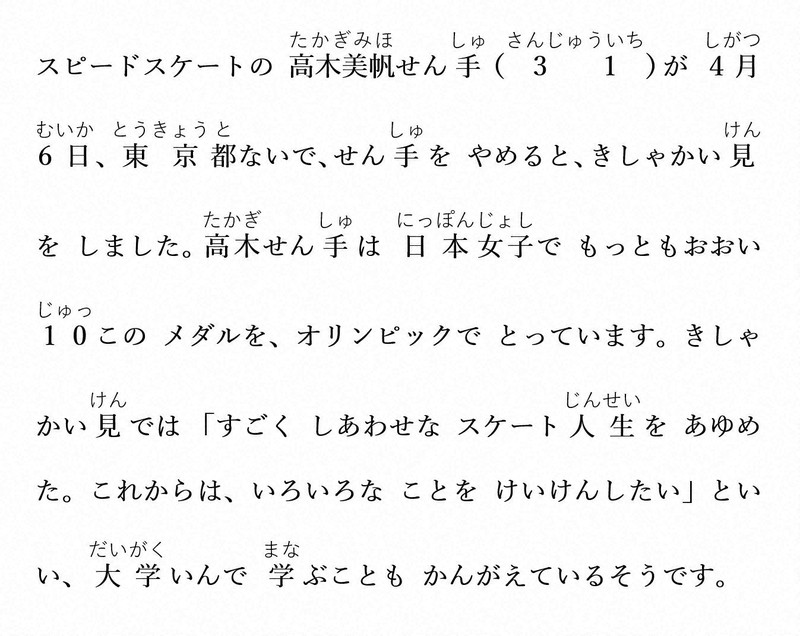 たかぎみほ しゅ さんじゅういち しがつ
スピードスケートの 高木美帆せん手(31)が 4月
むいか とうきょうと しゅ けん
6日、東京都ないで、せん手を やめると、きしゃかい見
たかぎ しゅ にっぽんじょし
を しました。高木せん手は 日本女子で もっともおおい
じゅっ
10この メダルを、オリンピックで とっています。きしゃ
けん じんせい
かい見では 「すごく しあわせな スケート人生を あゆめ
た。これからは、いろいろな ことを けいけんしたい」とい
だいがく まな
い、大学いんで 学ぶことも かんがえているそうです。